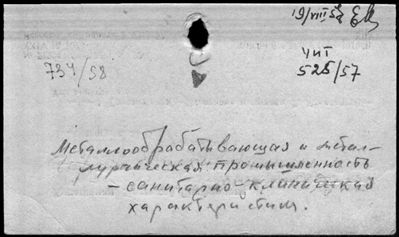 19/VIII 58
734/58
ЧИТ
525/57
Металлообрабатывающая и метал-
лургическая промышленность
– санитарно-клиническая
характеристика.